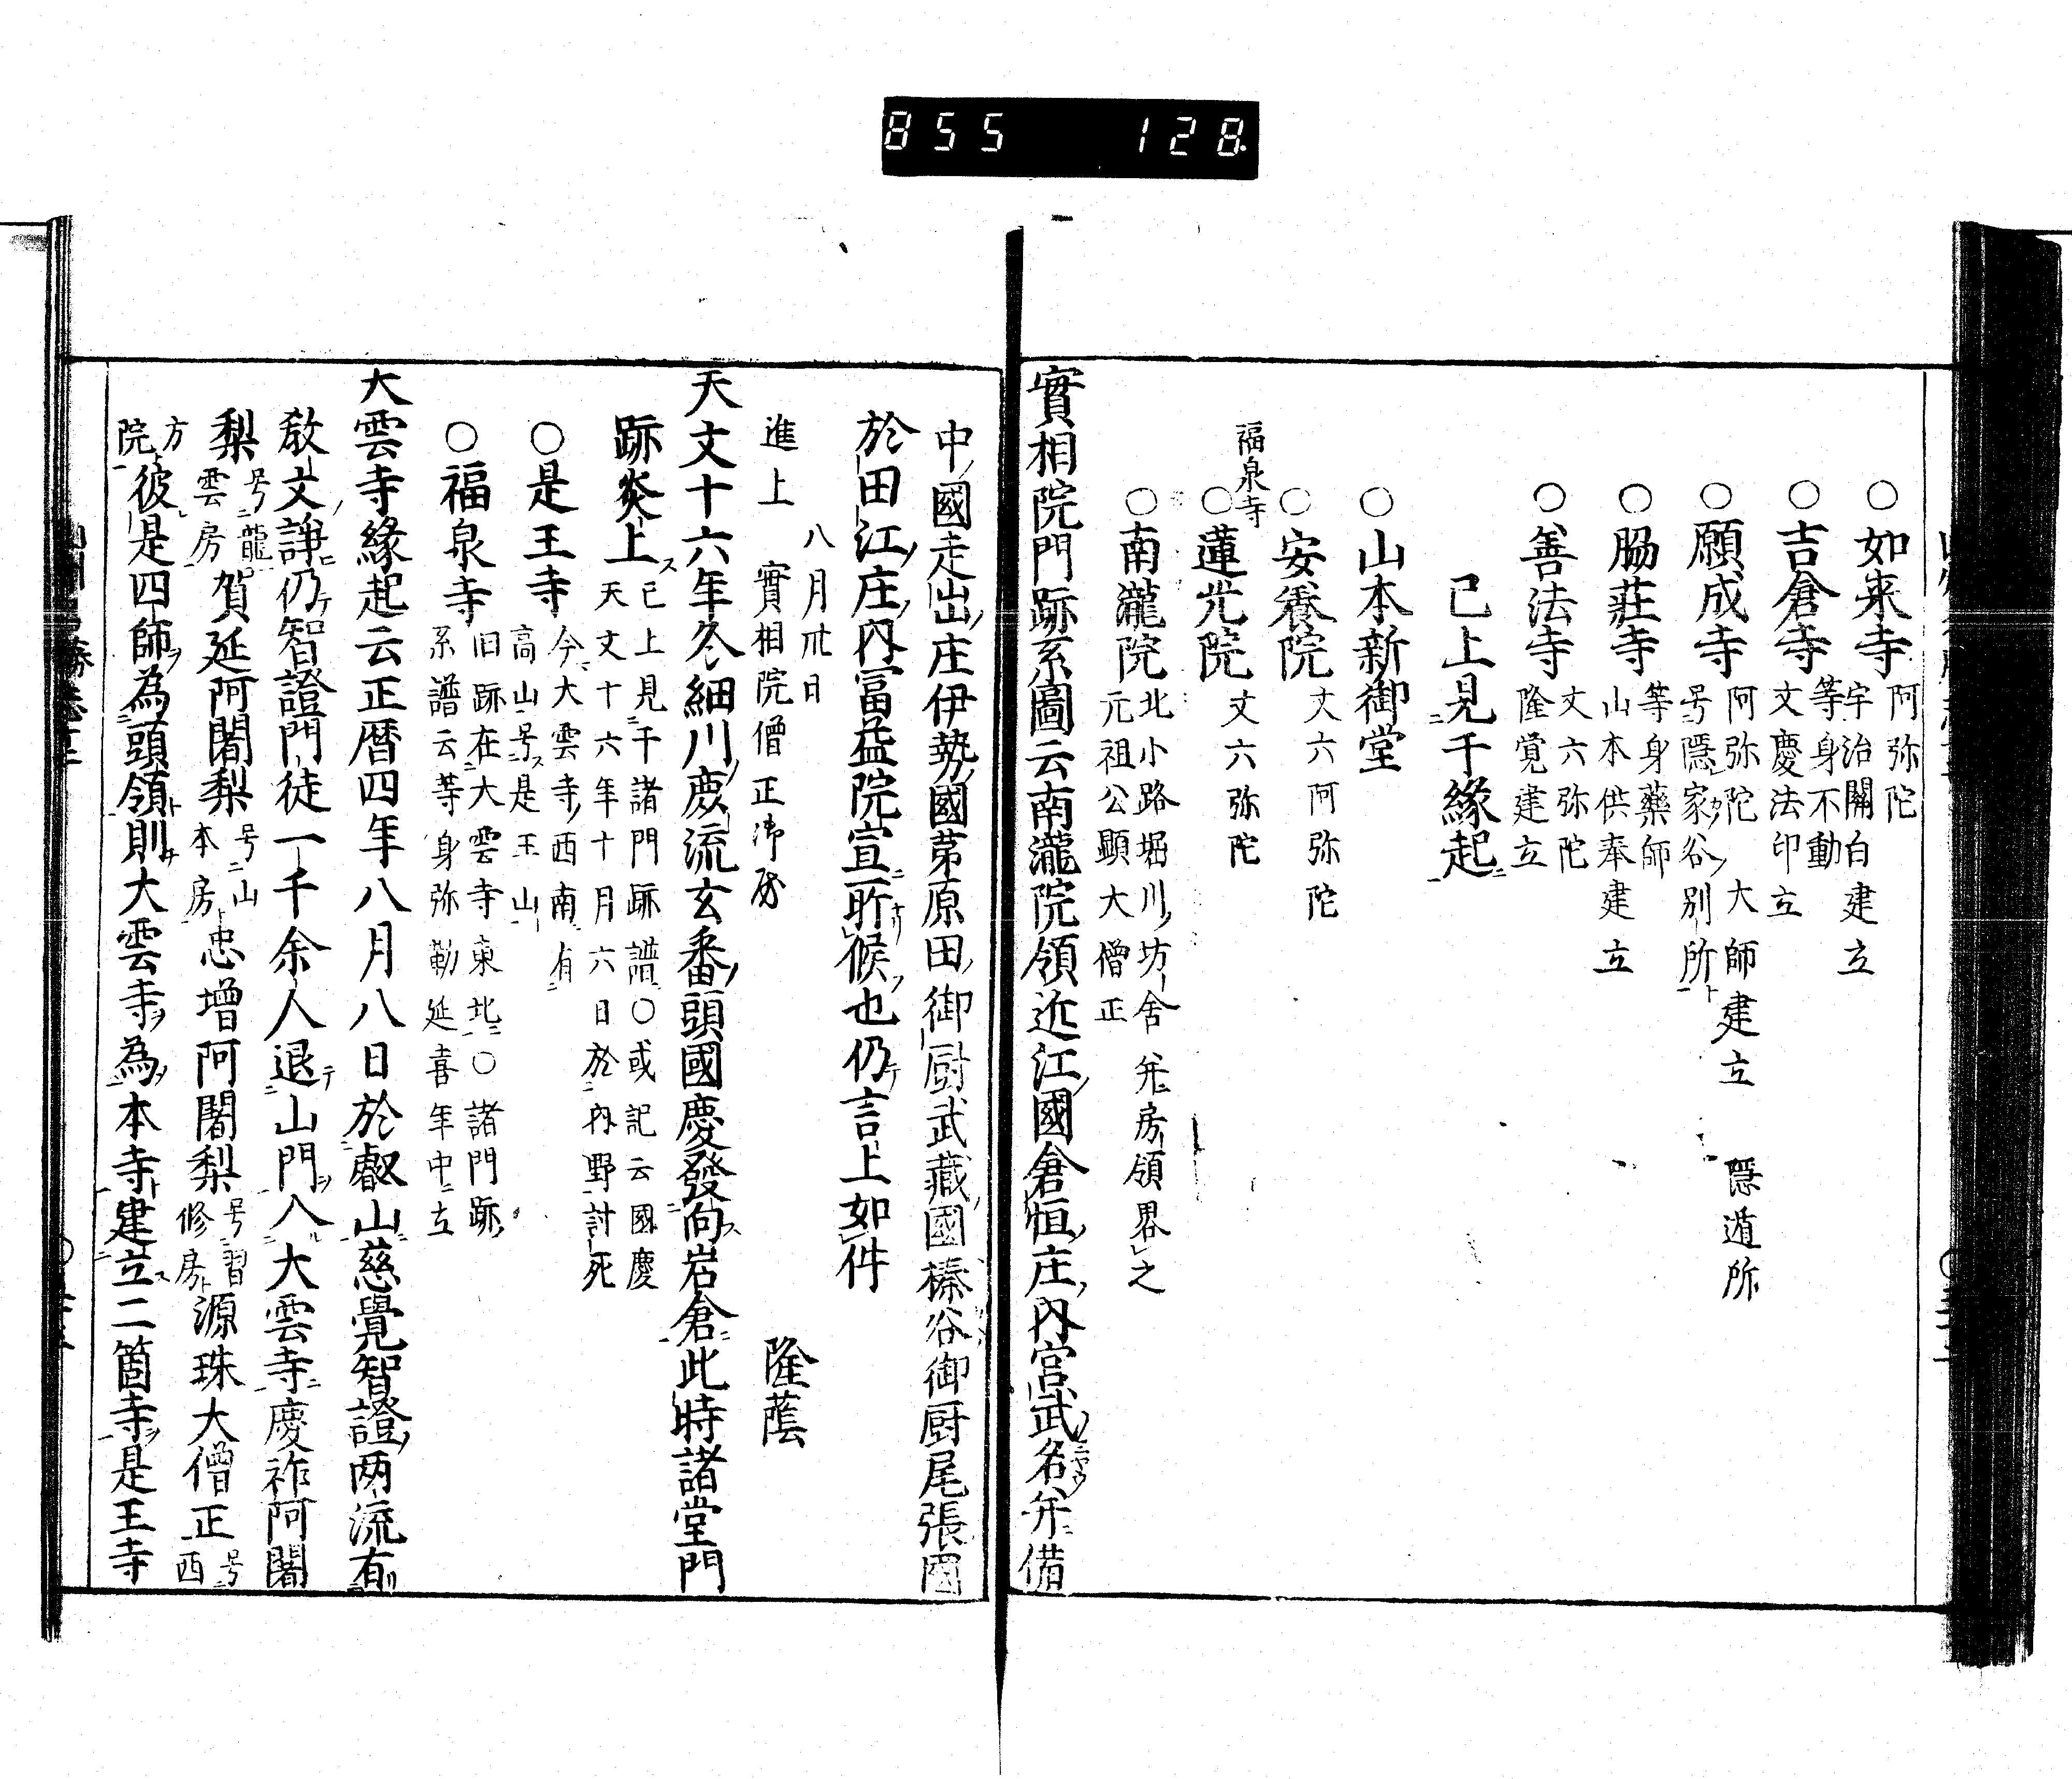 855 128
○如来寺 阿弥陀 宇治關白建立
○吉倉寺 等身不動 文慶法印立
○願成寺 阿弥陀 大師建立 隠遁所 号隠家谷別所
○脇莊寺 等身藥師 山本供奉建立
○善法寺 丈六弥陀 隆覚建立
已上見千緣起
○山本新御堂
○安養院 丈六阿弥陀
福泉寺
○蓮光院 丈六弥陀
○南瀧院 北小路堀川坊舍并房領畧之 元祖公顯大僧正
實相院門跡系圖云南瀧院領近江國倉恒庄內宮武名并備
中國走出庄伊勢國苐原田御厨武藏國榛谷御厨尾張國
於田江庄內冨益院宣所候也仍言上如件
八月卅日 隆蔭
進上 實相院僧正御房
天文十六年冬細川慶流玄番頭國慶發向岩倉此時諸堂門
跡炎上 已上見千諸門跡譜○或記云國慶 天文十六年十月六日於內野討死
○是王寺 今大雲寺西南有 高山号是王山
○福泉寺 旧跡在大雲寺東北○諸門跡 系譜云等身弥勒延喜年中立
大雲寺緣起云正暦四年八月八日於叡山慈覺智證两流有
敵文諍仍智證門徒一千余人退山門入大雲寺慶祚阿闍
梨 号龍雲房 賀延阿闍梨 号山本房 忠增阿闍梨 号習修房 源珠大僧正 号西
方院 彼是四師為頭領則大雲寺為本寺建立二箇寺是王寺